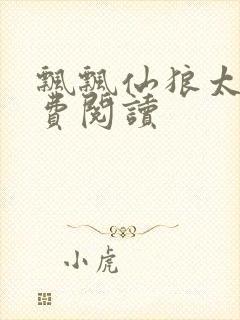 飄飄仙狼太
費閱讀
小虎